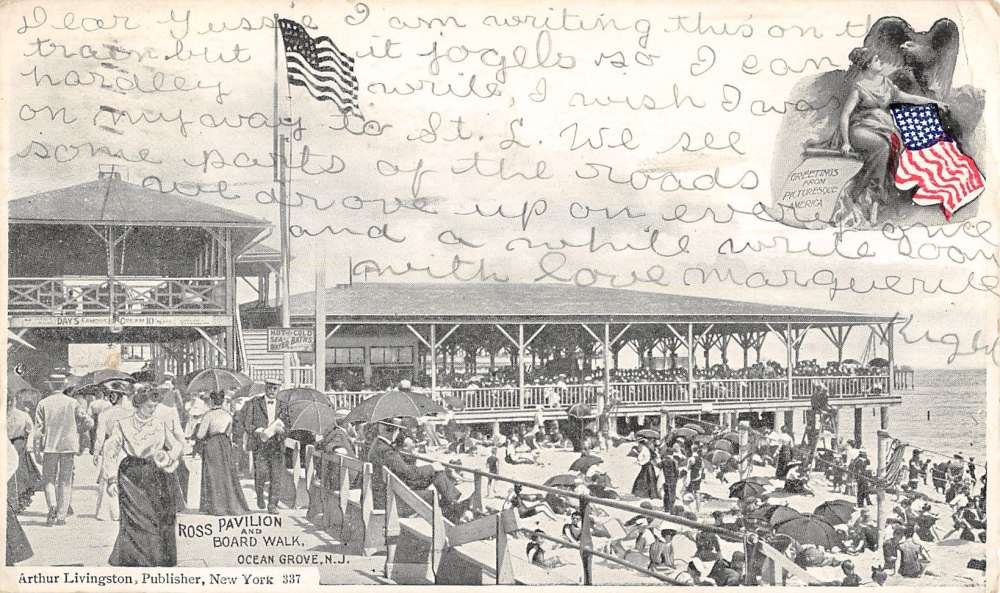 Dear Yussie I am writing this on th
train but it jogels so I can
hardley write, I wish I was
on my way to St. L. We see
some parts of the roads
we drove up on every once
and a while write soon
with love marguerite
GREETINGS
FROM
PICTURESQUE
AMERICA
DAY'S FAMOUS ICE CREAM 10¢
HOT AND COLD
SEA WATER BATHS
ROSS PAVILION
AND
BOARD WALK.
OCEAN GROVE, N.J.
Arthur Livingston, Publisher, New York 337